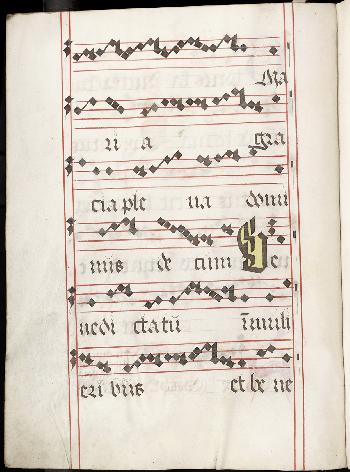 Ma
ri a gra
cia ple na domi
nus te cum Be
nedi cta tu ī muli
eri bus et be ne